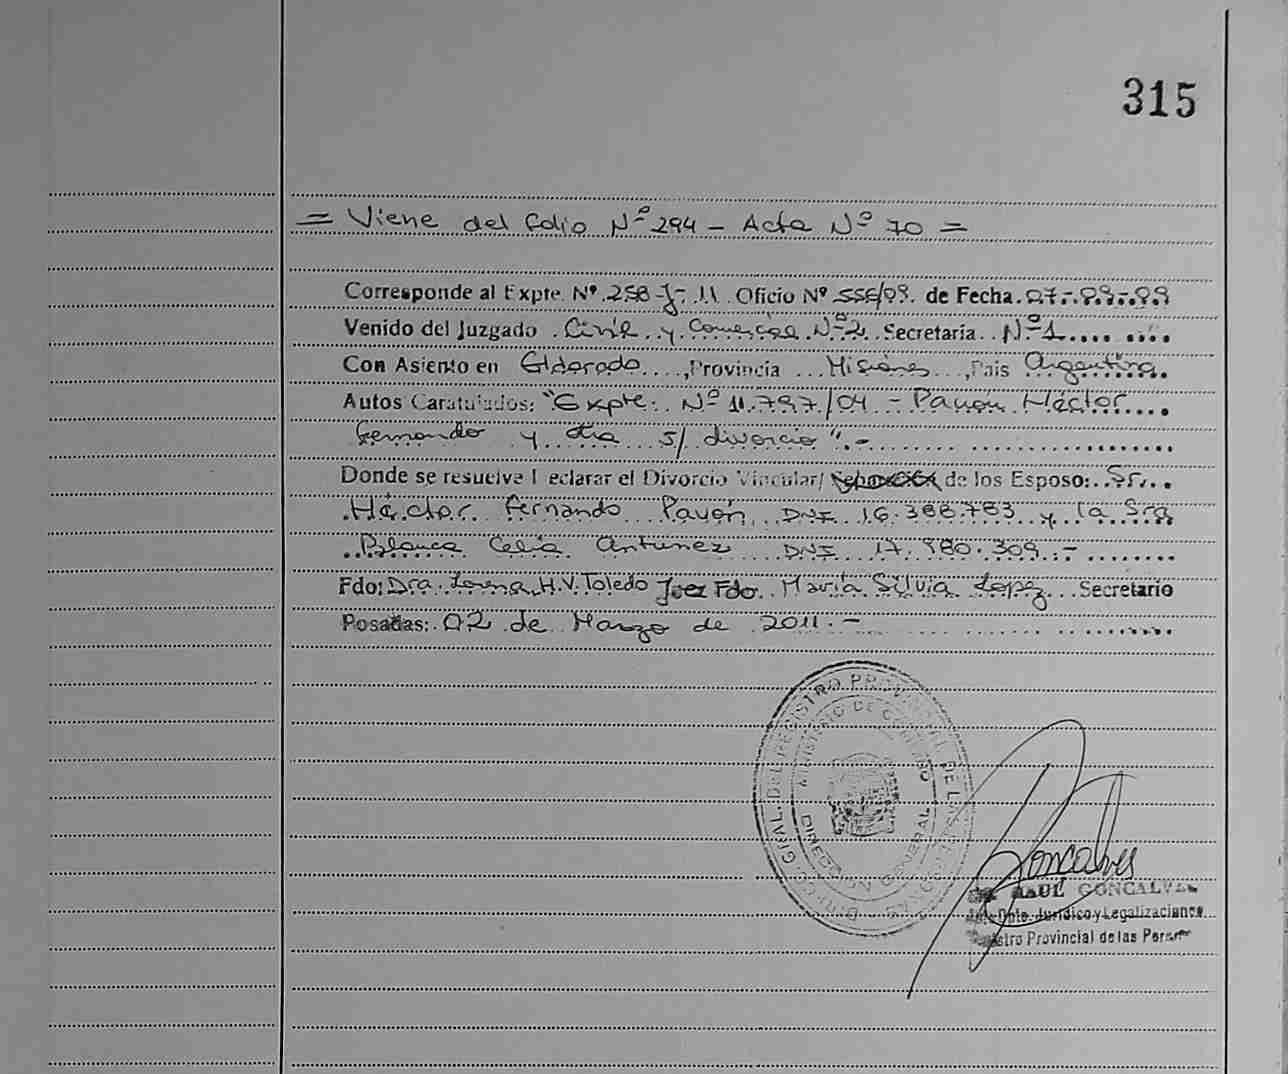 315
= Viene del folio Nº 294 - Acta Nº 70 =
Corresponde al Expte. Nº 258-J-11 Oficio Nº 556/09. de Fecha. 07-09-09
Venido del Juzgado Civil y Comercial Nº 2 Secretaria Nº 1
Con Asiento en Eldorado, Provincia Misiones, Pais Argentina
Autos Caratulados: "Expte. Nº 11.797/04 - Pavón Héctor
Fernando y otra s/ divorcio".-
Donde se resuelve Declarar el Divorcio Vincular/ de los Esposo: Sr.
Héctor Fernando Pavón DNI 16.388.783 y la Sra
Blanca Celia Antunez DNI 17.980.309.-
Fdo: Dra. Lorena H.V. Toledo Juez Fdo. María Silvia Lopez Secretario
Posadas: 02 de Marzo de 2011.-
DEL REGISTRO PROVINCIAL DE LAS PERSONAS
MINISTERIO DE GOBIERNO
DIRECCION GENERAL
Goncalves
RAUL GONCALVES
Dpto. Juridico y Legalizaciones
Registro Provincial de las Personas